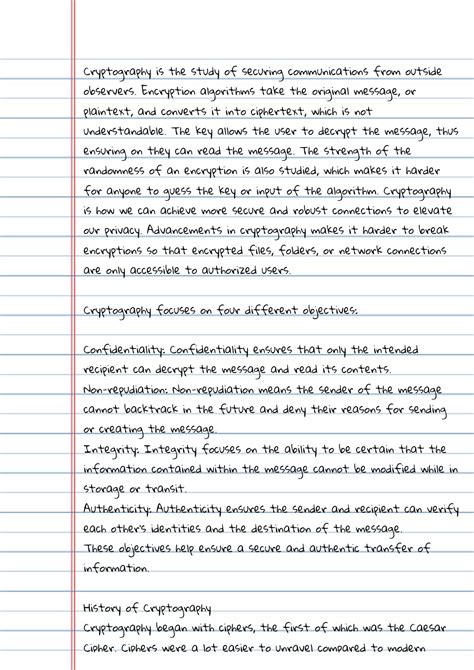 Cryptography is the study of securing communications from outside
observers. Encryption algorithms take the original message, or
plaintext, and converts it into ciphertext, which is not
understandable. The key allows the user to decrypt the message, thus
ensuring on they can read the message. The strength of the
randomness of an encryption is also studied, which makes it harder
for anyone to guess the key or input of the algorithm. Cryptography
is how we can achieve more secure and robust connections to elevate
our privacy. Advancements in cryptography makes it harder to break
encryptions so that encrypted files, folders, or network connections
are only accessible to authorized users.
Cryptography focuses on four different objectives:
Confidentiality: Confidentiality ensures that only the intended
recipient can decrypt the message and read its contents.
Non-repudiation: Non-repudiation means the sender of the message
cannot backtrack in the future and deny their reasons for sending
or creating the message.
Integrity: Integrity focuses on the ability to be certain that the
information contained within the message cannot be modified while in
storage or transit.
Authenticity: Authenticity ensures the sender and recipient can verify
each other's identities and the destination of the message.
These objectives help ensure a secure and authentic transfer of
information.
History of Cryptography
Cryptography began with ciphers, the first of which was the Caesar
Cipher. Ciphers were a lot easier to unravel compared to modern